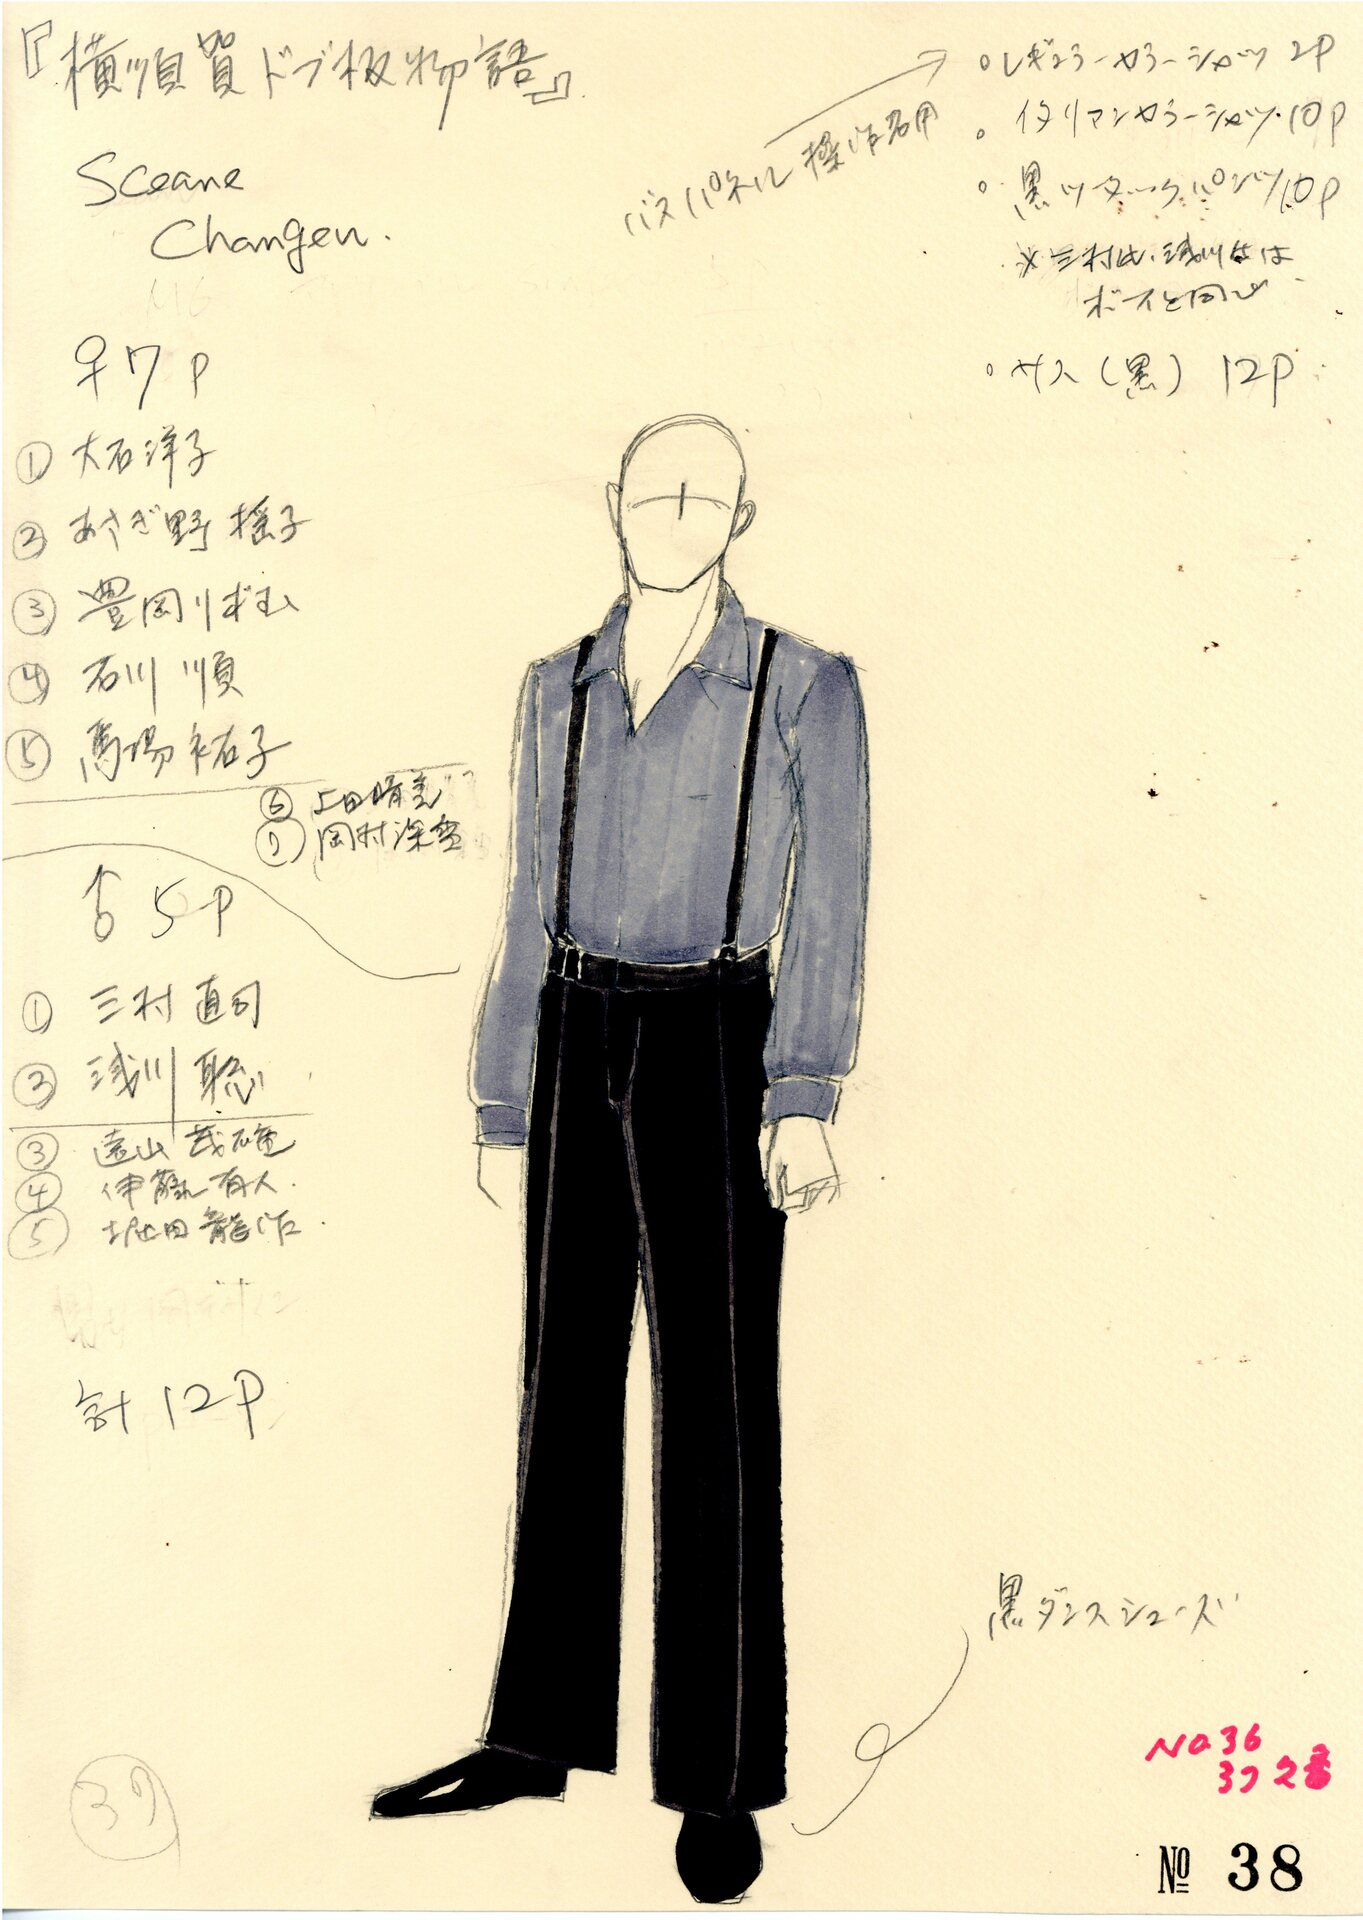 『横須賀ドブ板物語』
Sceane
Changen.
♀7P
①大石洋子
② あさぎ野 揺子
③ 豊岡リボン
④ 石川 順
⑤ 馬場 祐子
⑥ 上田晴美
⑦ 岡村深雪
♂ 5P
① 三村 直司
② 浅川 聡
③ 遠山 哉雄
④ 伊藤 有人
⑤ 堀田 龍作
計 12P
㊲
バスパネル操作者用
レギュラーカラーシャツ 2P
イタリアンカラーシャツ 10P
黒ツータックパンツ 10P
※三村氏・浅川氏は
ボーイと同じ
サス(黒) 12P
黒ダンスシューズ
NO 36
37
№ 38